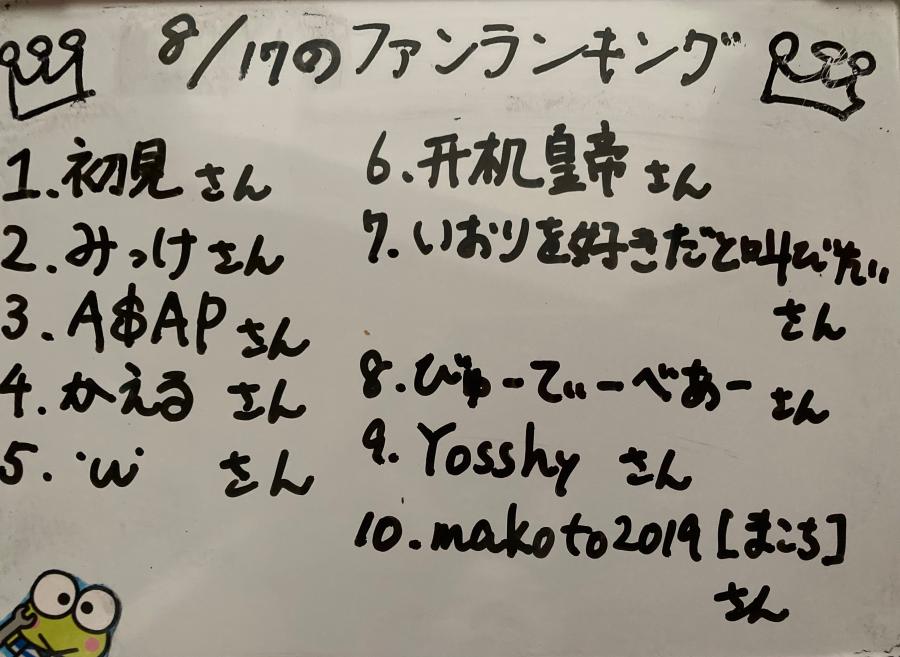 8/17のファンランキング
1.初見さん
2.みっけさん
3.A$APさん
4.かえる さん
5.･ω･ さん
6.开机皇帝さん
7.いおりを好きだと叫びたい
さん
8.びゅーてぃーべあーさん
9.Yosshy さん
10.makoto2019[まこち]
さん